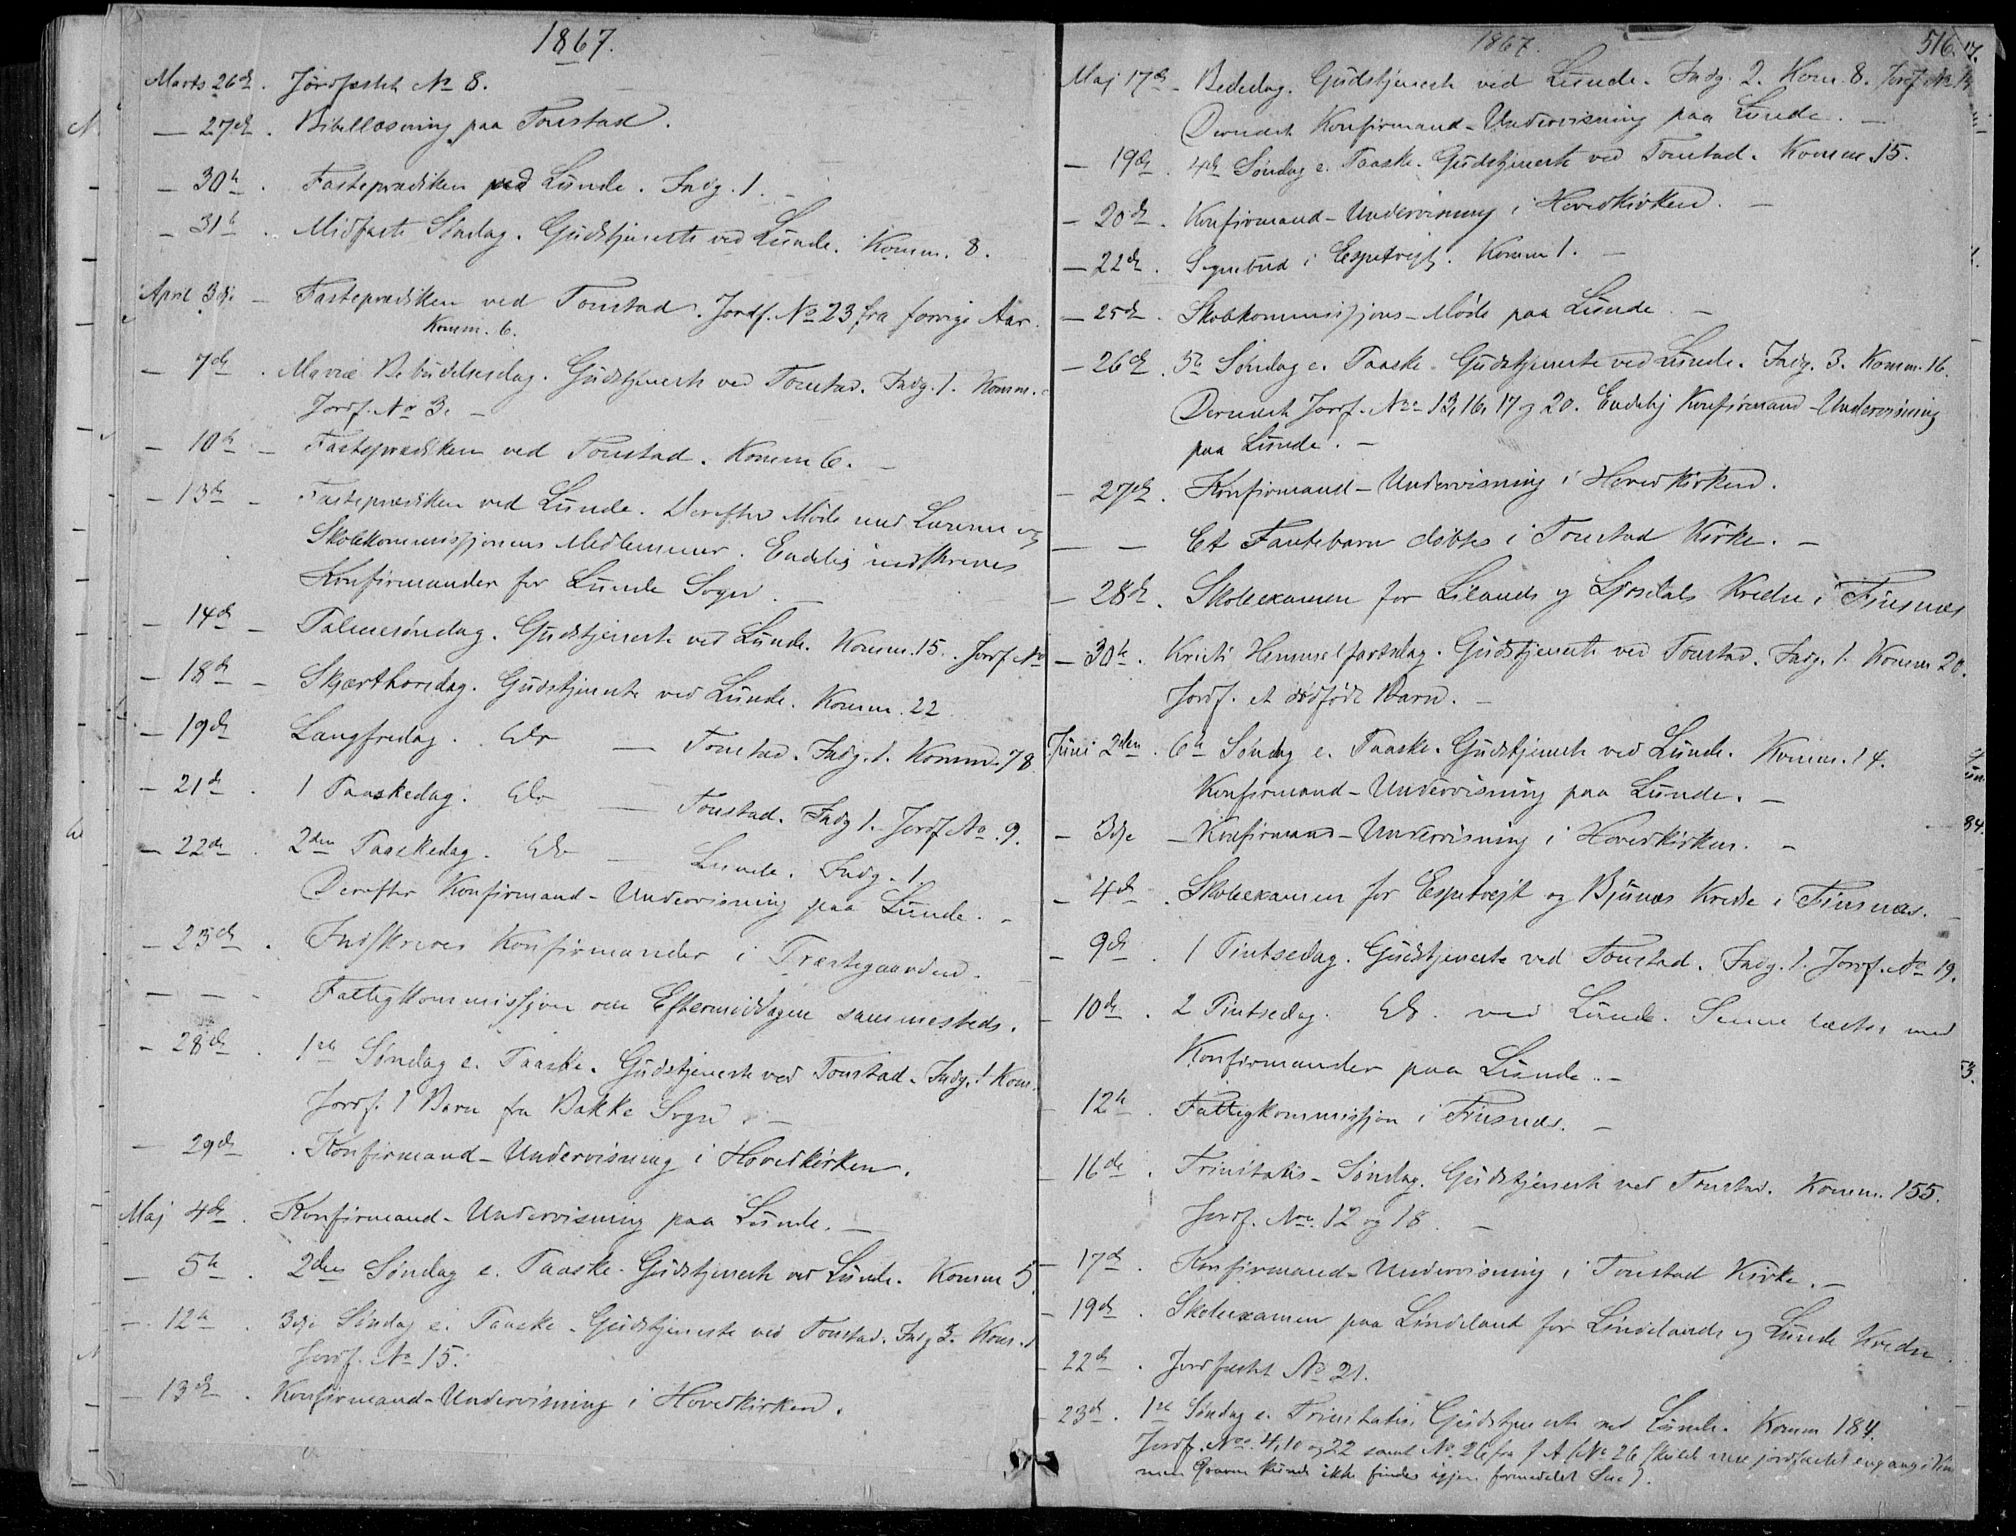 1867.
Marts 26de. Jordfæstet No 8.
— 27de. Bibellæsning paa Tonstad.
— 30te. Fasteprædiken ved Lunde. Indg. 1. —
— 31te. Midfaste Søndag. Gudstjeneste ved Lunde. Komm. 8.
April 3dje — Fasteprædiken ved Tonstad. Jordf. No 23 fra forrige Aar.
Komm. 6.
— 7de. Mariæ Bebudelsesdag. Gudstjeneste ved Tonstad. Indg. 1. Komm.
Jordf. No 3. —
— 10de — Fasteprædiken ved Tonstad. Komm 6. —
— 13de — Fasteprædiken ved Lunde. Derefter Møde med Lærerne og
Skolekommissjonens Medlemmer. Endelig indskreves
Konfirmander for Lunde Sogn. —
— 14de — Palmesøndag. Gudstjeneste ved Lunde. Komm. 15. Jordf No
— 18de — Skjærthorsdag. Gudstjeneste ved Lunde. Komm. 22
— 19de Langfredag. Do — Tonstad. Indg. 1. Komm. 78.
— 21de. 1 Paaskedag. Do — Tonstad. Indg 1. Jordf No 9.
— 22de. 2den Paaskedag. Do — Lunde. Indg. 1.
Derefter Konfirmand-Undervisning paa Lunde. —
— 23de. Indskreves Konfirmander i Præstegaarden.
— — — Fattigkommissjon om Eftermiddagen sammesteds.
— 28de. 1ste Søndag e. Paaske. Gudstjeneste ved Tonstad. Indg. 1 Kom.
Jordf. 1 Barn fra Bakke Sogn. —
— 29de. Konfirmand-Undervisning i Hovedkirken.
Maj 4de. Konfirmand-Undervisning paa Lunde. —
— 5te. 2den Søndag e. Paaske. Gudstjeneste ved Lunde. Komm 5.
— 12te. 3dje Søndag e. Paaske. Gudstjeneste ved Tonstad. Indg 3. Kom.
Jordf. No 15.
— 13de. Konfirmand-Undervisning i Hovedkirken.
1867.
516.
Maj 17de — Bededag. Gudstjeneste ved Lunde. Indg. 2. Kom. 8. Jordf No
Dernæst Konfirmand-Undervisning paa Lunde. —
— 19de. 4de Søndag e. Paaske. Gudstjeneste ved Tonstad. Komm. 15.
— 20de. Konfirmand-Undervisning i Hovedkirken. —
— 22de. Sognebud i Espetvejt. Komm 1. —
— 25de. Skolekommissjons-Møde paa Lunde. —
— 26de. 5te Søndag e. Paaske. Gudstjeneste ved Lunde. Indg. 3. Komm. 16.
Dernæst Jordf. Noe 13, 16, 17 og 20. Endelig Konfirmand-Undervisning
paa Lunde. —
— 27de. Konfirmand-Undervisning i Hovedkirken.
— — Et Fantebarn døbtes i Tonstad Kirke. —
— 28de. Skoleexamen for Lilands og Ljosdals Kredse i Finsnæs
— 30te. Kristi Himmelfartsdag. Gudstjeneste ved Tonstad. Indg. 1. Komm 20.
Jordf. et dødfødt Barn. —
Juni 2den. 6te Søndag e. Paaske. Gudstjeneste ved Lunde. Komm. 14.
Konfirmand-Undervisning paa Lunde. —
— 3dje — Konfirmand-Undervisning i Hovedkirken. —
— 4de. Skoleexamen for Espetvejt og Bjunæs Kredse i Finsnæs. —
— 9de. 1 Pintsedag. Gudstjeneste ved Tonstad. Indg. 1. Jordf. No 19.
— 10de. 2 Pintsedag. Do. ved Lunde. Senere læstes med
Konfirmander paa Lunde. —
— 12te. Fattigkommissjon i Finsnæs. —
— 16de. Trinitatis-Søndag. Gudstjeneste ved Tonstad. Komm. 155.
Jordf. Noe 12 og 18. —
— 17de. Konfirmand-Undervisning i Tonstad Kirke. —
— 19de. Skoleexamen paa Lindeland for Lindelands og Lunde Kredse.
— 22de. Jordfæstet No 21.
— 23de. 1ste Søndag e. Trinitatis. Gudstjeneste ved Lunde. Komm 184.
Jordf. Noe 4, 10 og 22 samt No 26 fra f A (No 26 skulde være jordfæstet engang i
men Graven kunde ikke findes igjen formedelst Sne).